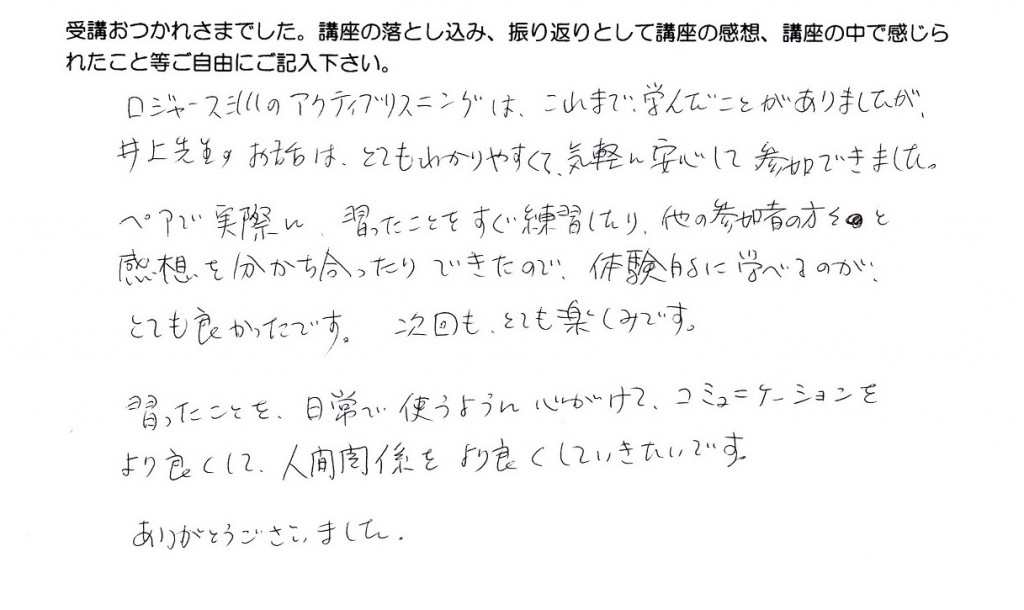 受講おつかれさまでした。講座の落とし込み、振り返りとして講座の感想、講座の中で感じら
れたこと等ご自由にご記入下さい。
ロジャース派のアクティブリスニングは、これまで、学んだことがありましたが、
井上先生のお話は、とてもわかりやすくて、気軽に安心して参加できました。
ペアで実際に、習ったことをすぐ練習したり、他の参加者の方と
感想を分かち合ったりできたので、体験的に学べるのが、
とても良かったです。次回も、とても楽しみです。
習ったことを、日常で使うように心がけて、コミュニケーションを
より良くして、人間関係をより良くしていきたいです。
ありがとうございました。